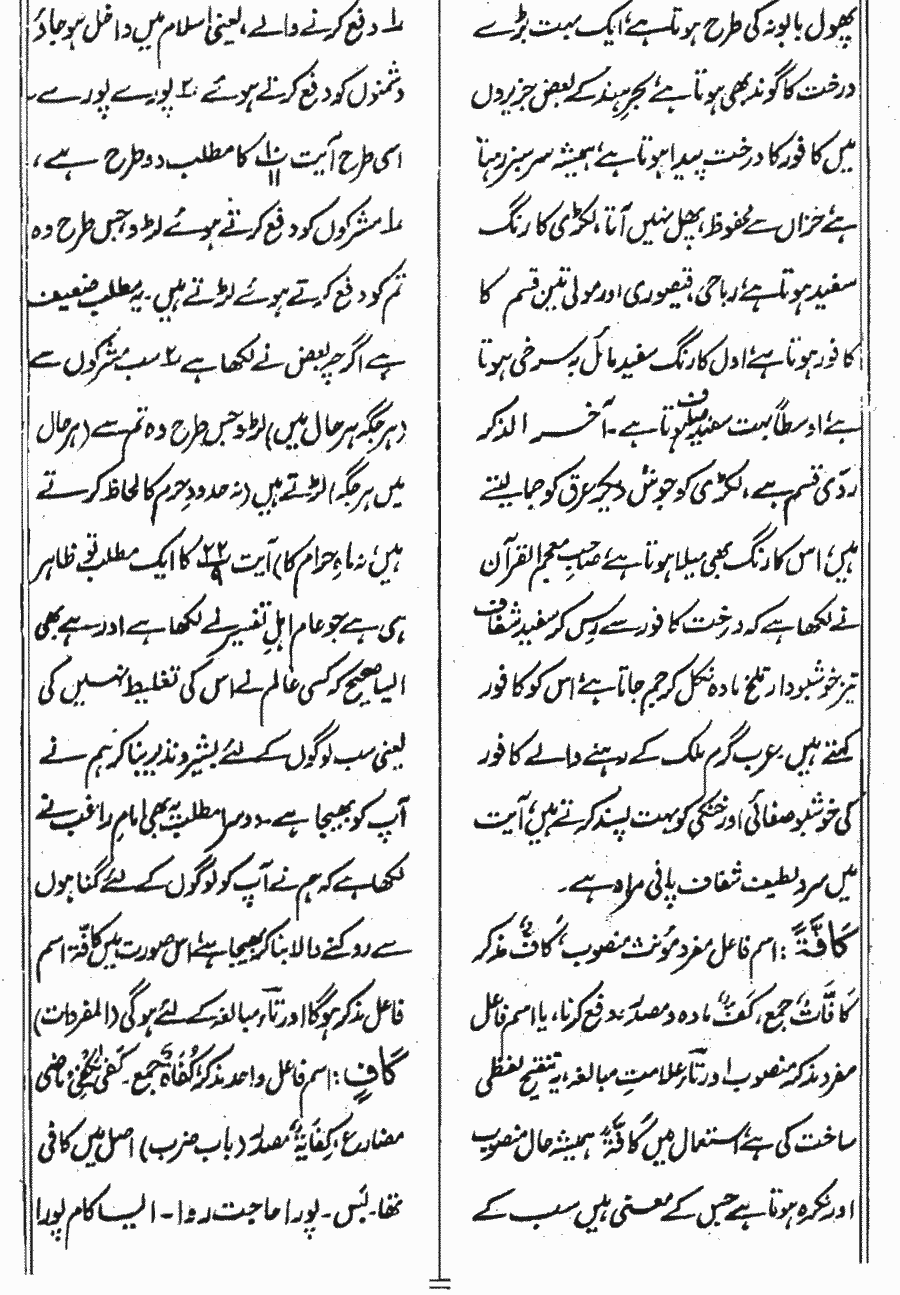 پھول بابونہ کی طرح ہوتا ہے، ایک بہت بڑے
درخت کا گوند بھی ہوتا ہے بحرِ ہند کے بعض جزیروں
میں کافور کا درخت پیدا ہوتا ہے، ہمیشہ سرسبز رہتا
ہے خزاں سے محفوظ، پھل نہیں آتا، لکڑی کا رنگ
سفید ہوتا ہے، رباحی، قیصوری اور مولی تین قسم کا
کافور ہوتا ہے اول کا رنگ سفید مائل بہ سرخی ہوتا
ہے، اوسطاً بہت سفید صاف ہوتا ہے۔ آخر الذکر
ردّی قسم ہے، لکڑی کو جوش دیکر عرق کو جما لیتے
ہیں، اس کا رنگ بھی میلا ہوتا ہے، صاحبِ معجم القرآن
نے لکھا ہے کہ درخت کافور سے رِس کر سفید شفاف
تیز خوشبودار تلخ مادہ نکل کر جم جاتا ہے اس کو کافور
کہتے ہیں۔ عرب گرم ملک کے رہنے والے کافور
کی خوشبو صفائی اور خنکی کو بہت پسند کرتے ہیں، آیت
میں سرد لطیف شفاف پانی مراد ہے۔
کَافَّۃً : اسم فاعل مفرد مؤنث منصوب، کَافٌّ مذکر
کَافَّاتٌ جمع، کَفٌّ مادہ و مصدر۔ دفع کرنا، یا اسم فاعل
مفرد مذکر منصوب اور تاء علامتِ مبالغہ، یہ تنقیح لفظی
ساخت کی ہے، استعمال میں کَافَّۃً ہمیشہ حال منصوب
اور نکرہ ہوتا ہے جس کے معنی ہیں سب کے
۱؎ دفع کرنے والے، یعنی اسلام میں داخل ہو جاؤ
دشمنوں کو دفع کرتے ہوئے ۲؎ پورے پورے۔
اسی طرح آیت ۱۰/۱۱ کا مطلب دو طرح ہے،
۱؎ مشرکوں کو دفع کرتے ہوئے لڑو جس طرح وہ
تم کو دفع کرتے ہوئے لڑتے ہیں۔ یہ مطلب ضعیف
ہے اگرچہ بعض نے لکھا ہے ۲؎ سب مشرکوں سے
(ہر جگہ ہر حال میں) لڑو جس طرح وہ تم سے (ہر حال
میں ہر جگہ) لڑتے ہیں (نہ حدودِ حرم کا لحاظ کرتے
ہیں، نہ ماہِ حرام کا) آیت ۲۲/۹ کا ایک مطلب تو ظاہر
ہی ہے جو عام اہلِ تفسیر نے لکھا ہے اور ہے بھی
ایسا صحیح کہ کسی عالم نے اس کی تغلیط نہیں کی
یعنی سب لوگوں کے لئے بشیر و نذیر بنا کر ہم نے
آپ کو بھیجا ہے۔ دوسرا مطلب یہ بھی امام راغب نے
لکھا ہے کہ ہم نے آپ کو لوگوں کے لئے گناہوں
سے روکنے والا بنا کر بھیجا ہے، اس صورت میں کافّۃ اسم
فاعل مذکر ہوگا اور تاء مبالغہ کے لئے ہوگی (المفردات)
کَافٍ : اسم فاعل واحد مذکر، کُفَاۃٌ جمع۔ کَفٰی یَکْفِیْ، ماضی
مضارع، کِفَایَۃٌ مصدر (باب ضرب) اصل میں کافی
تھا۔ بَس۔ پورا حاجت روا۔ ایسا کام پورا